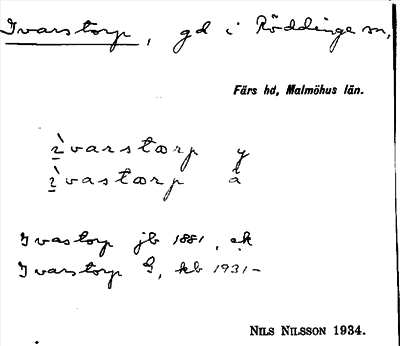 Ivarstorp, gd i Röddinge sn,
Färs hd, Malmöhus län.
ìvarstɷrp y
ìvastɷrp ä
Ivastorp jb 1881, ek
Ivarstorp G, kb 1931–
NILS NILSSON 1934.